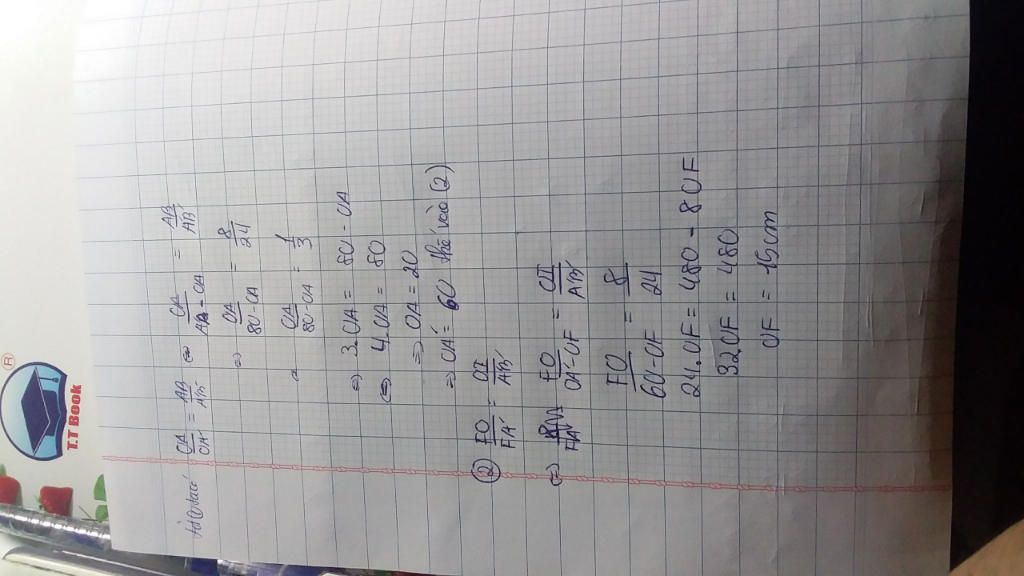 ®
T.T Book
Ta có OA/OA' = AB/A'B' ⇔ OA/AA' - OA = AB/A'B'
⇒ OA/80 - OA = 8/24
OA/80 - OA = 1/3
⇒ 3.OA = 80 - OA
⇔ 4.OA = 80
⇒ OA = 20
⇒ OA' = 60 thế vào (2)
② FO/FA' = OI/A'B'
⇔ FO/OA' - OF = OI/A'B'
FO/60 - OF = 8/24
24.OF = 480 - 8OF
32OF = 480
OF = 15cm